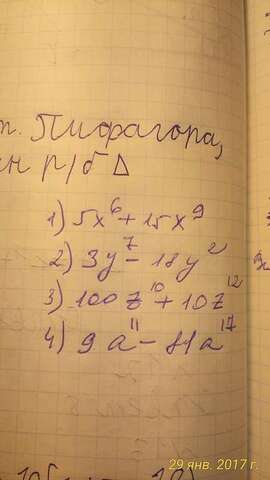 т. Пифагора,
н р/б Δ
1) 5x⁶ + 15x⁹
2) 3y⁷ - 18y²
3) 100z¹⁰ + 10z¹²
4) 9a¹¹ - 81a¹⁷
29 янв. 2017 г.